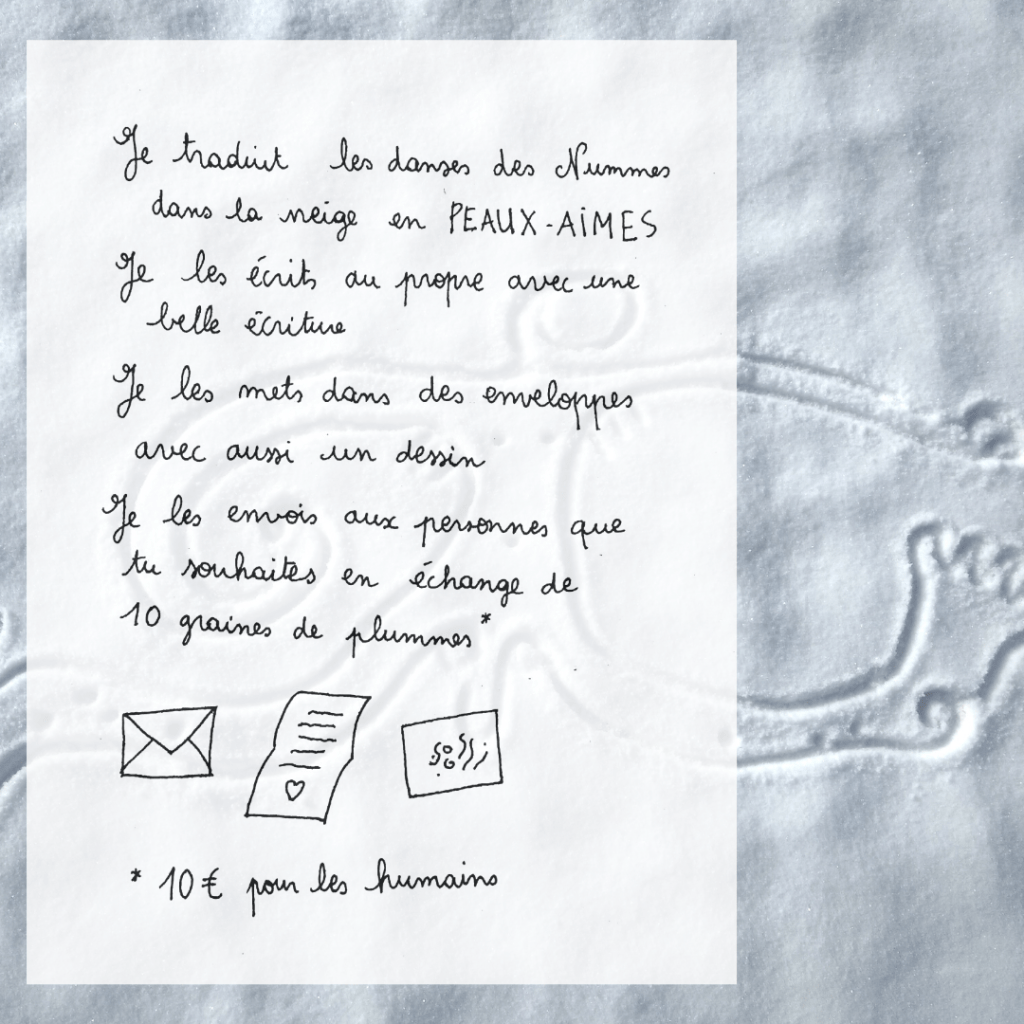 Je traduit les danses des Nummes
dans la neige en PEAUX-AiMES
Je les écrits au propre avec une
belle écriture
Je les mets dans des enveloppes
avec aussi un dessin
Je les envois aux personnes que
tu souhaites en échange de
10 graines de plummes*
* 10€ pour les humains